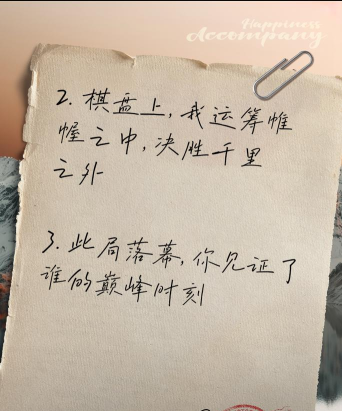 Happiness
Accompany
2. 棋盘上，我运筹帷
幄之中，决胜千里
之外
3. 此局落幕，你见证了
谁的巅峰时刻